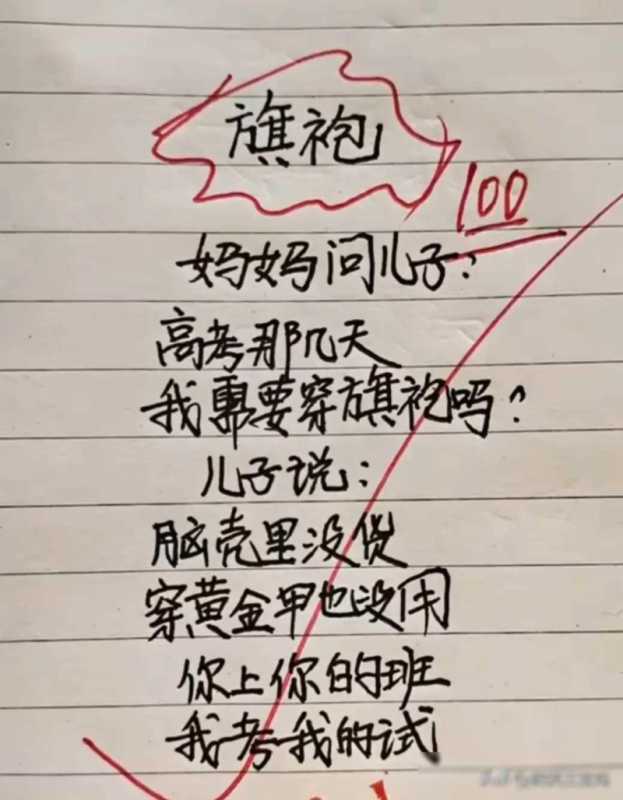 旗袍
100
妈妈问儿子:
高考那几天
我需要穿旗袍吗?
儿子说:
脑壳里没货
穿黄金甲也没用
你上你的班
我考我的试